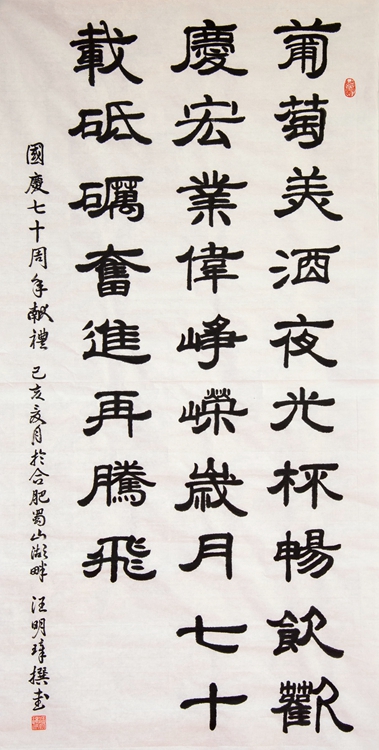 葡萄美酒夜光杯暢飲歡
慶宏業偉崢嶸歲月七十
載砥礪奮進再騰飛
國慶七十周年獻禮 己亥夏月於合肥蜀山湖畔 汪明璋撰書